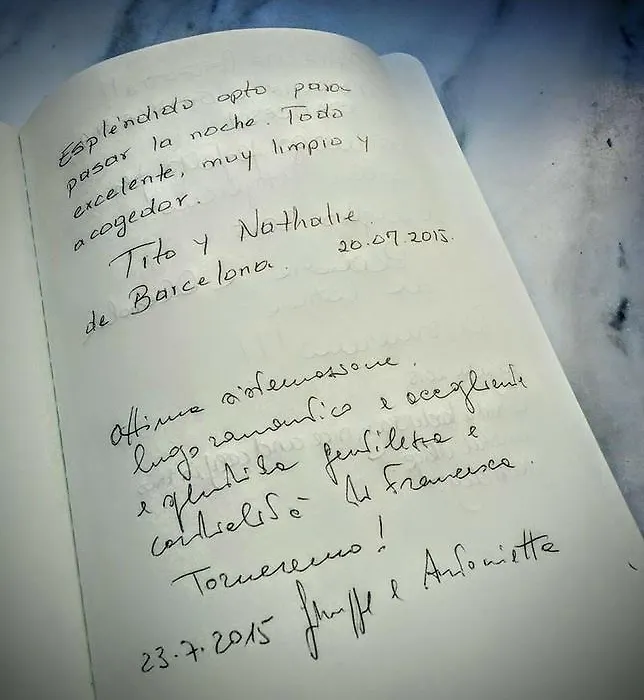 Espléndido apto para
pasar la noche. Todo
excelente, muy limpio y
acogedor.
Tito y Nathalie
de Barcelona. 20.07.2015.
Ottima sistemazione.
luogo romantico e accogliente
e splendida gentilezza e
cordialità di Francesca.
Torneremo!
23.7.2015 Giuseppe e Antonietta